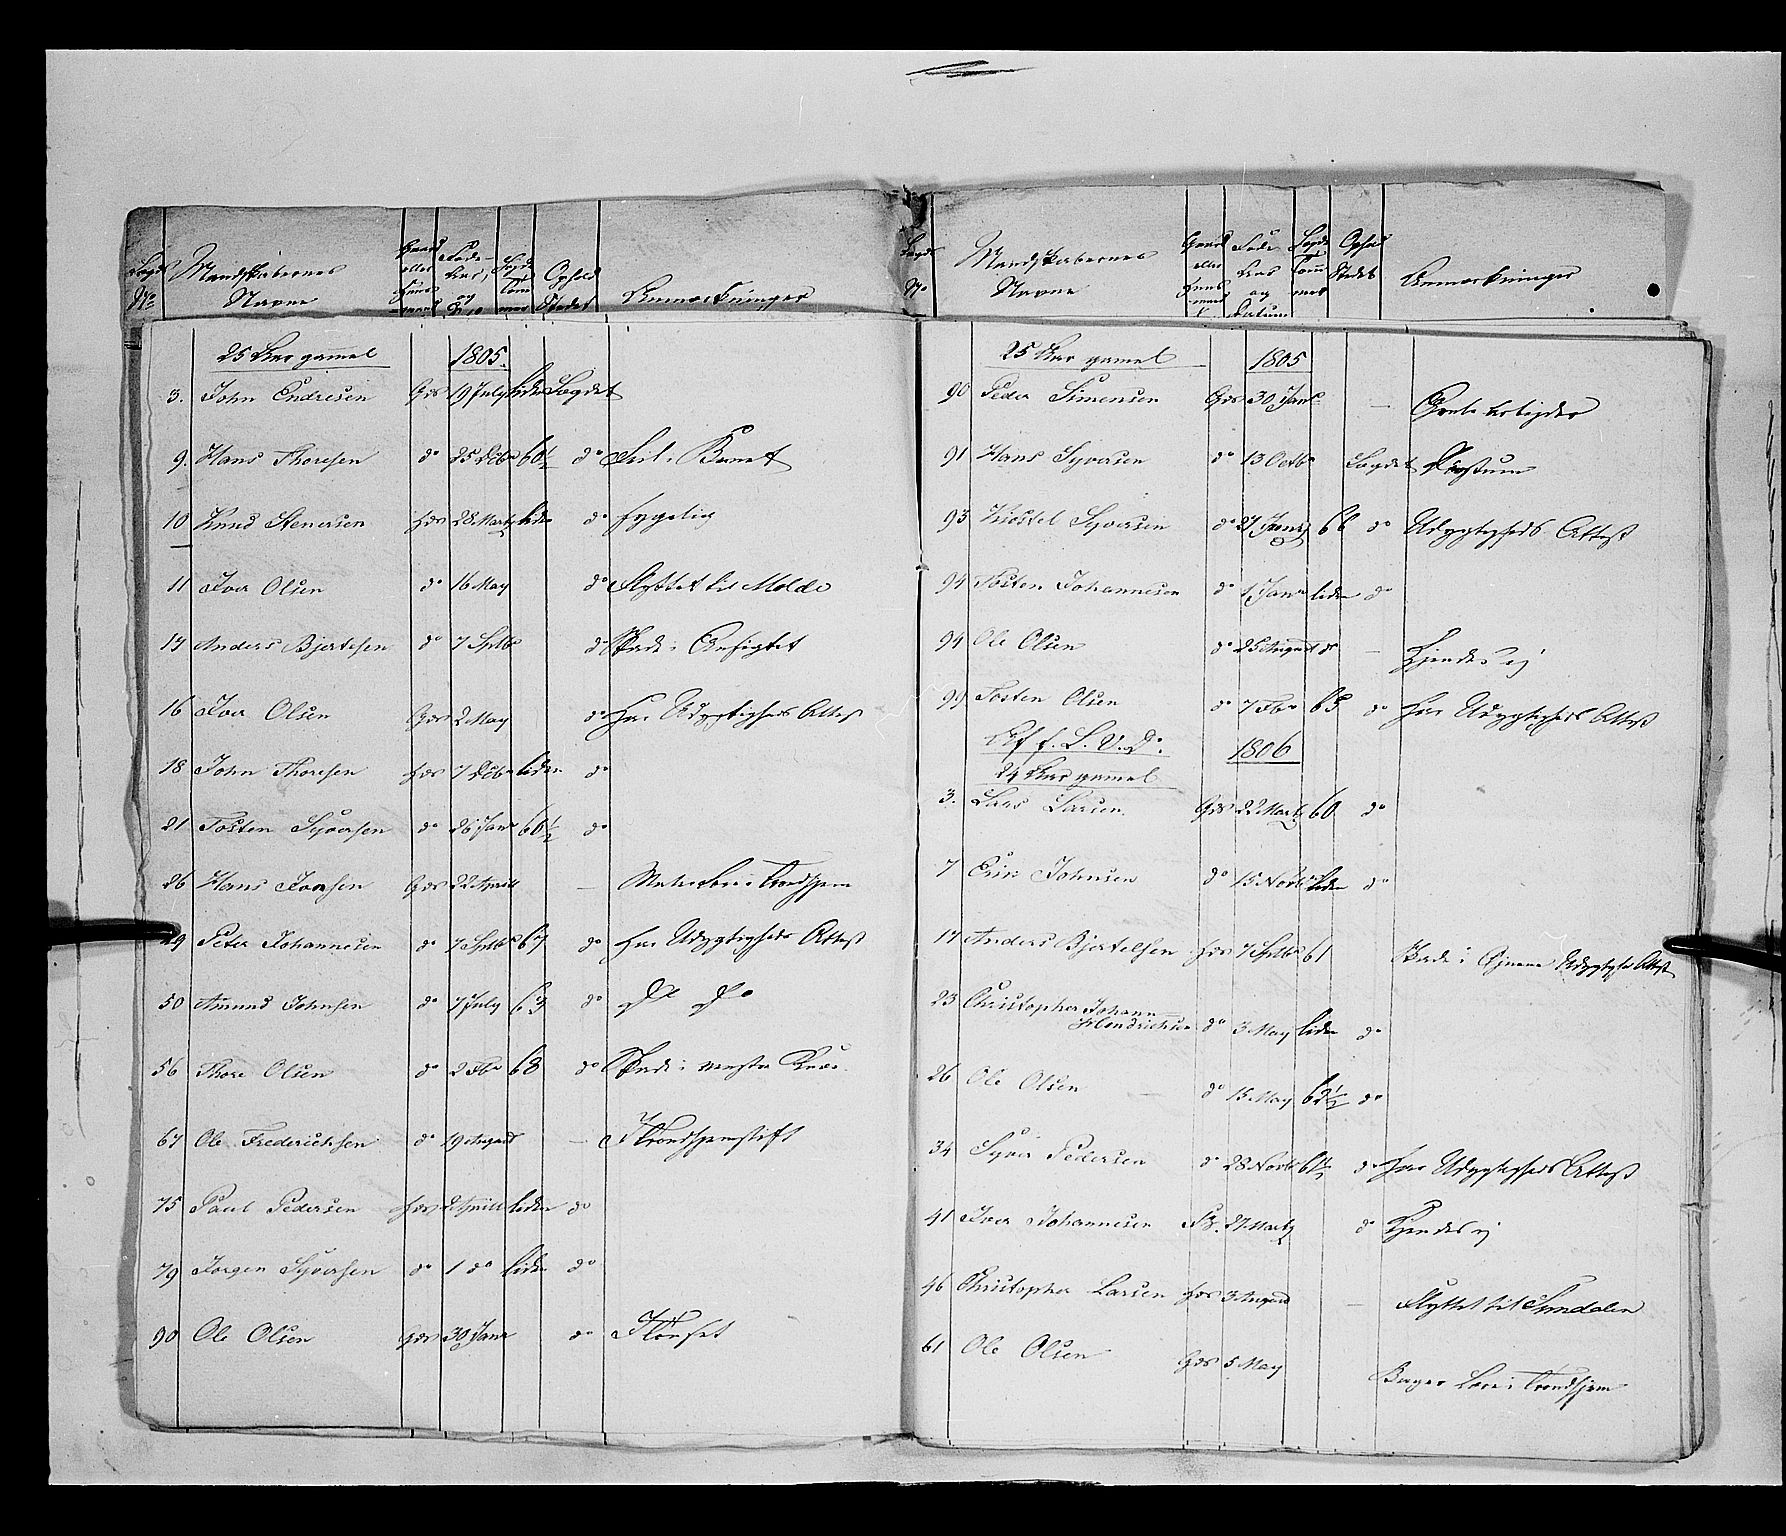 Lægds No Mandskabernes Navne Gaard eller Huusmand Føde Aar og Dato Høyde Tommer Ophold Stedet Anmærkninger
25 Aar gammel 1805.
3. John Endresen Gds 19 July liden Lægdet
9. Hans Thoresen do 25 Debr 60½ do
10 Knud Stenersen Hds 28 Marty liden do sygelig
11 Iver Olsen do 16 May do Flyttet til Molde
17 Anders Bjertesen do 7 Sptbr do Skade i Ansigtet
16 Iver Olsen Gds 2 May do Har Udygtigheds Attest
18 John Thoresen Hds 7 Debr liden do
21 Tosten Syversen do 26 Janr 66½ do
26 Hans Iversen Gds 22 Aprill — Trondhjem
29 Peter Johannesen do 7 Sptbr 67 do Har Udygtigheds Attest
50 Amund Johnsen do 7 July 63 do Do Do
56 Thore Olsen do 2 Fbr 68 do Skade i venstre Knæe.
67 Ole Frederichsen do 19 August — I Trondhjemstift
75 Paul Pedersen Hds 2 Aprill liden do
79 Jørgen Syversen do 1 do liden do
90 Ole Olsen Gds 30 Janr do
Lægds No Mandskabernes Navne Gaard eller Huusmand Føde Aar og Datum Høyde Tommer Ophold Stedet Anmærkninger
25 Aar gamel 1805
90 Peder Simensen Gds 30 Janr —
91 Hans Syversen do 13 Octbr Lægdet
93 Kiøstel Syversen do 27 Janr 66 do Udygtigheds Attest
94 Tosten Johannesen do 1 Janr liden do
94 Ole Olsen do 25 August do — Kjendes ej
99 Tosten Olsen do 7 Fbr 65 do Har Udygtigheds Attest
1806
24 Aar gamel
3. Lars Larsen. Gds 22 Marty 60 do
7 Erik Johnsen do 15 Novbr liden do
17 Anders Bjertelsen Hds 7 Sptbr 61 Skade i Øjnene Udygtigh Attest
23 Christopher Johann Hendrichsen do 3 May liden do
26 Ole Olsen do 15 May 62½ do
34 Syver Pedersen do 28 Novbr 61½ do Har Udygtigheds Attest
41 Iver Johannesen 27 Marty do Kjendes ej
46 Christopher Larsen Hds 3 August — Flyttet til Sundalen
61 Ole Olsen Gds 5 May Bager Lære i Trondhjem